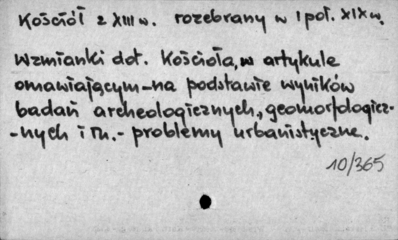 Kościół z XIII w. rozebrany w I poł. XIX w.
Wzmianki dot. Kościoła, w artykule
omawiającym – na podstawie wyników
badań archeologicznych, geomorfologicz-
-nych i in. – problemy urbanistyczne.
10/365